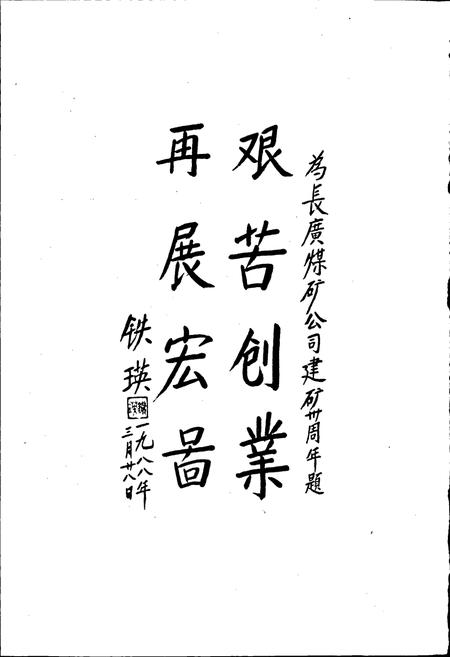 为長廣煤矿公司建矿卅周年題
艰苦创業
再展宏啚
铁瑛
一九八八年
三月廿八日